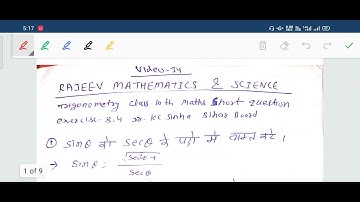 5:17
Video-34
RAJEEV MATHEMATICS & SCIENCE
Trigonometry class 10th maths Short question
exercise-8.4 Dr. KC Sinha Bihar Board
① sinθ को secθ के पदों में व्यक्त करें।
→ sinθ = √(sec²θ-1) / secθ
1 of 9